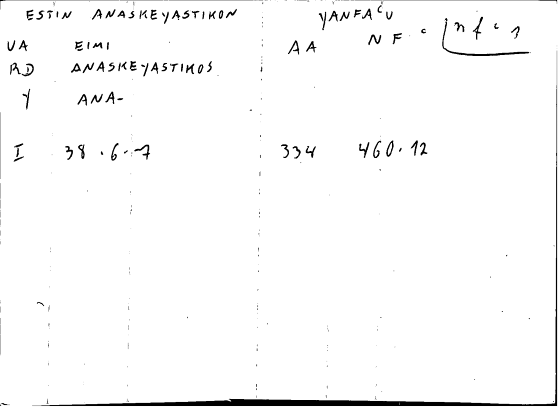 ESTIN ANASKEYASTIKON YANFAʿU
UA EIMI AA NF ʿ nfʿ1
RD ANASKEYASTIKOS
Y ANA-
I 38.6-7 334 460.12